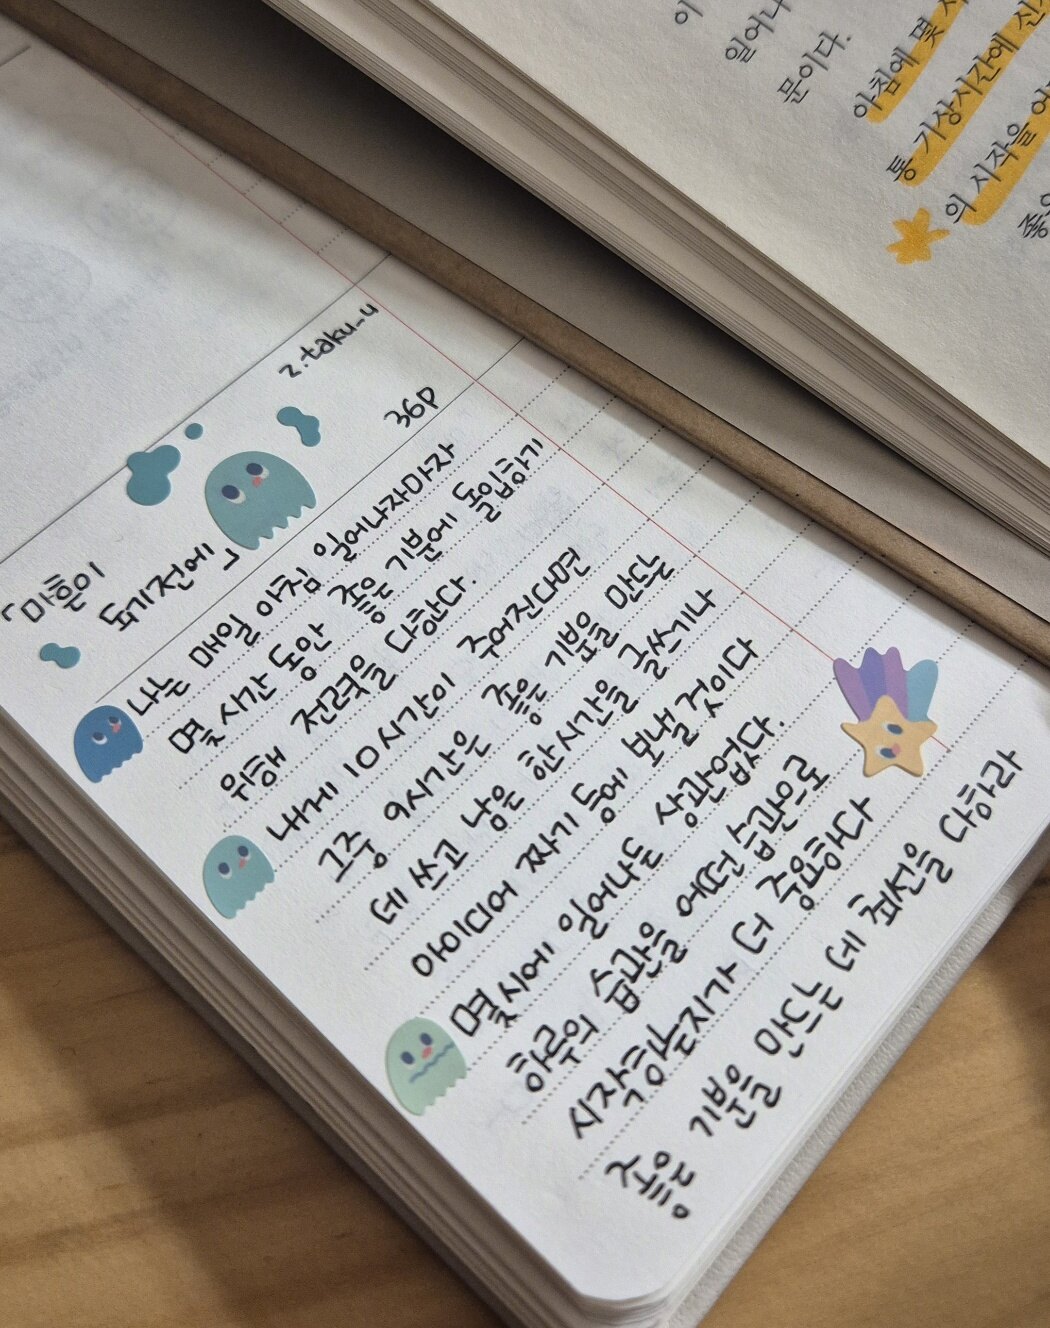 이
일어나
문이다.
아침에 몇 시
통 기상시간에 신
의 시작을 어
좋은
z.taku_u
「마흔이
되기전에」
36p
나는 매일 아침 일어나자마자
몇 시간 동안 좋은 기분에 돌입하기
위해 전력을 다한다.
내게 10시간이 주어진다면
그중 9시간은 좋은 기분을 만드는
데 쓰고 남은 한시간을 글쓰기나
아이디어 짜기 등에 보낼것이다
몇시에 일어나든 상관없다.
하루의 습관을 어떤 습관으로
시작하는지가 더 중요하다
좋은 기분을 만드는 데 최선을 다하라